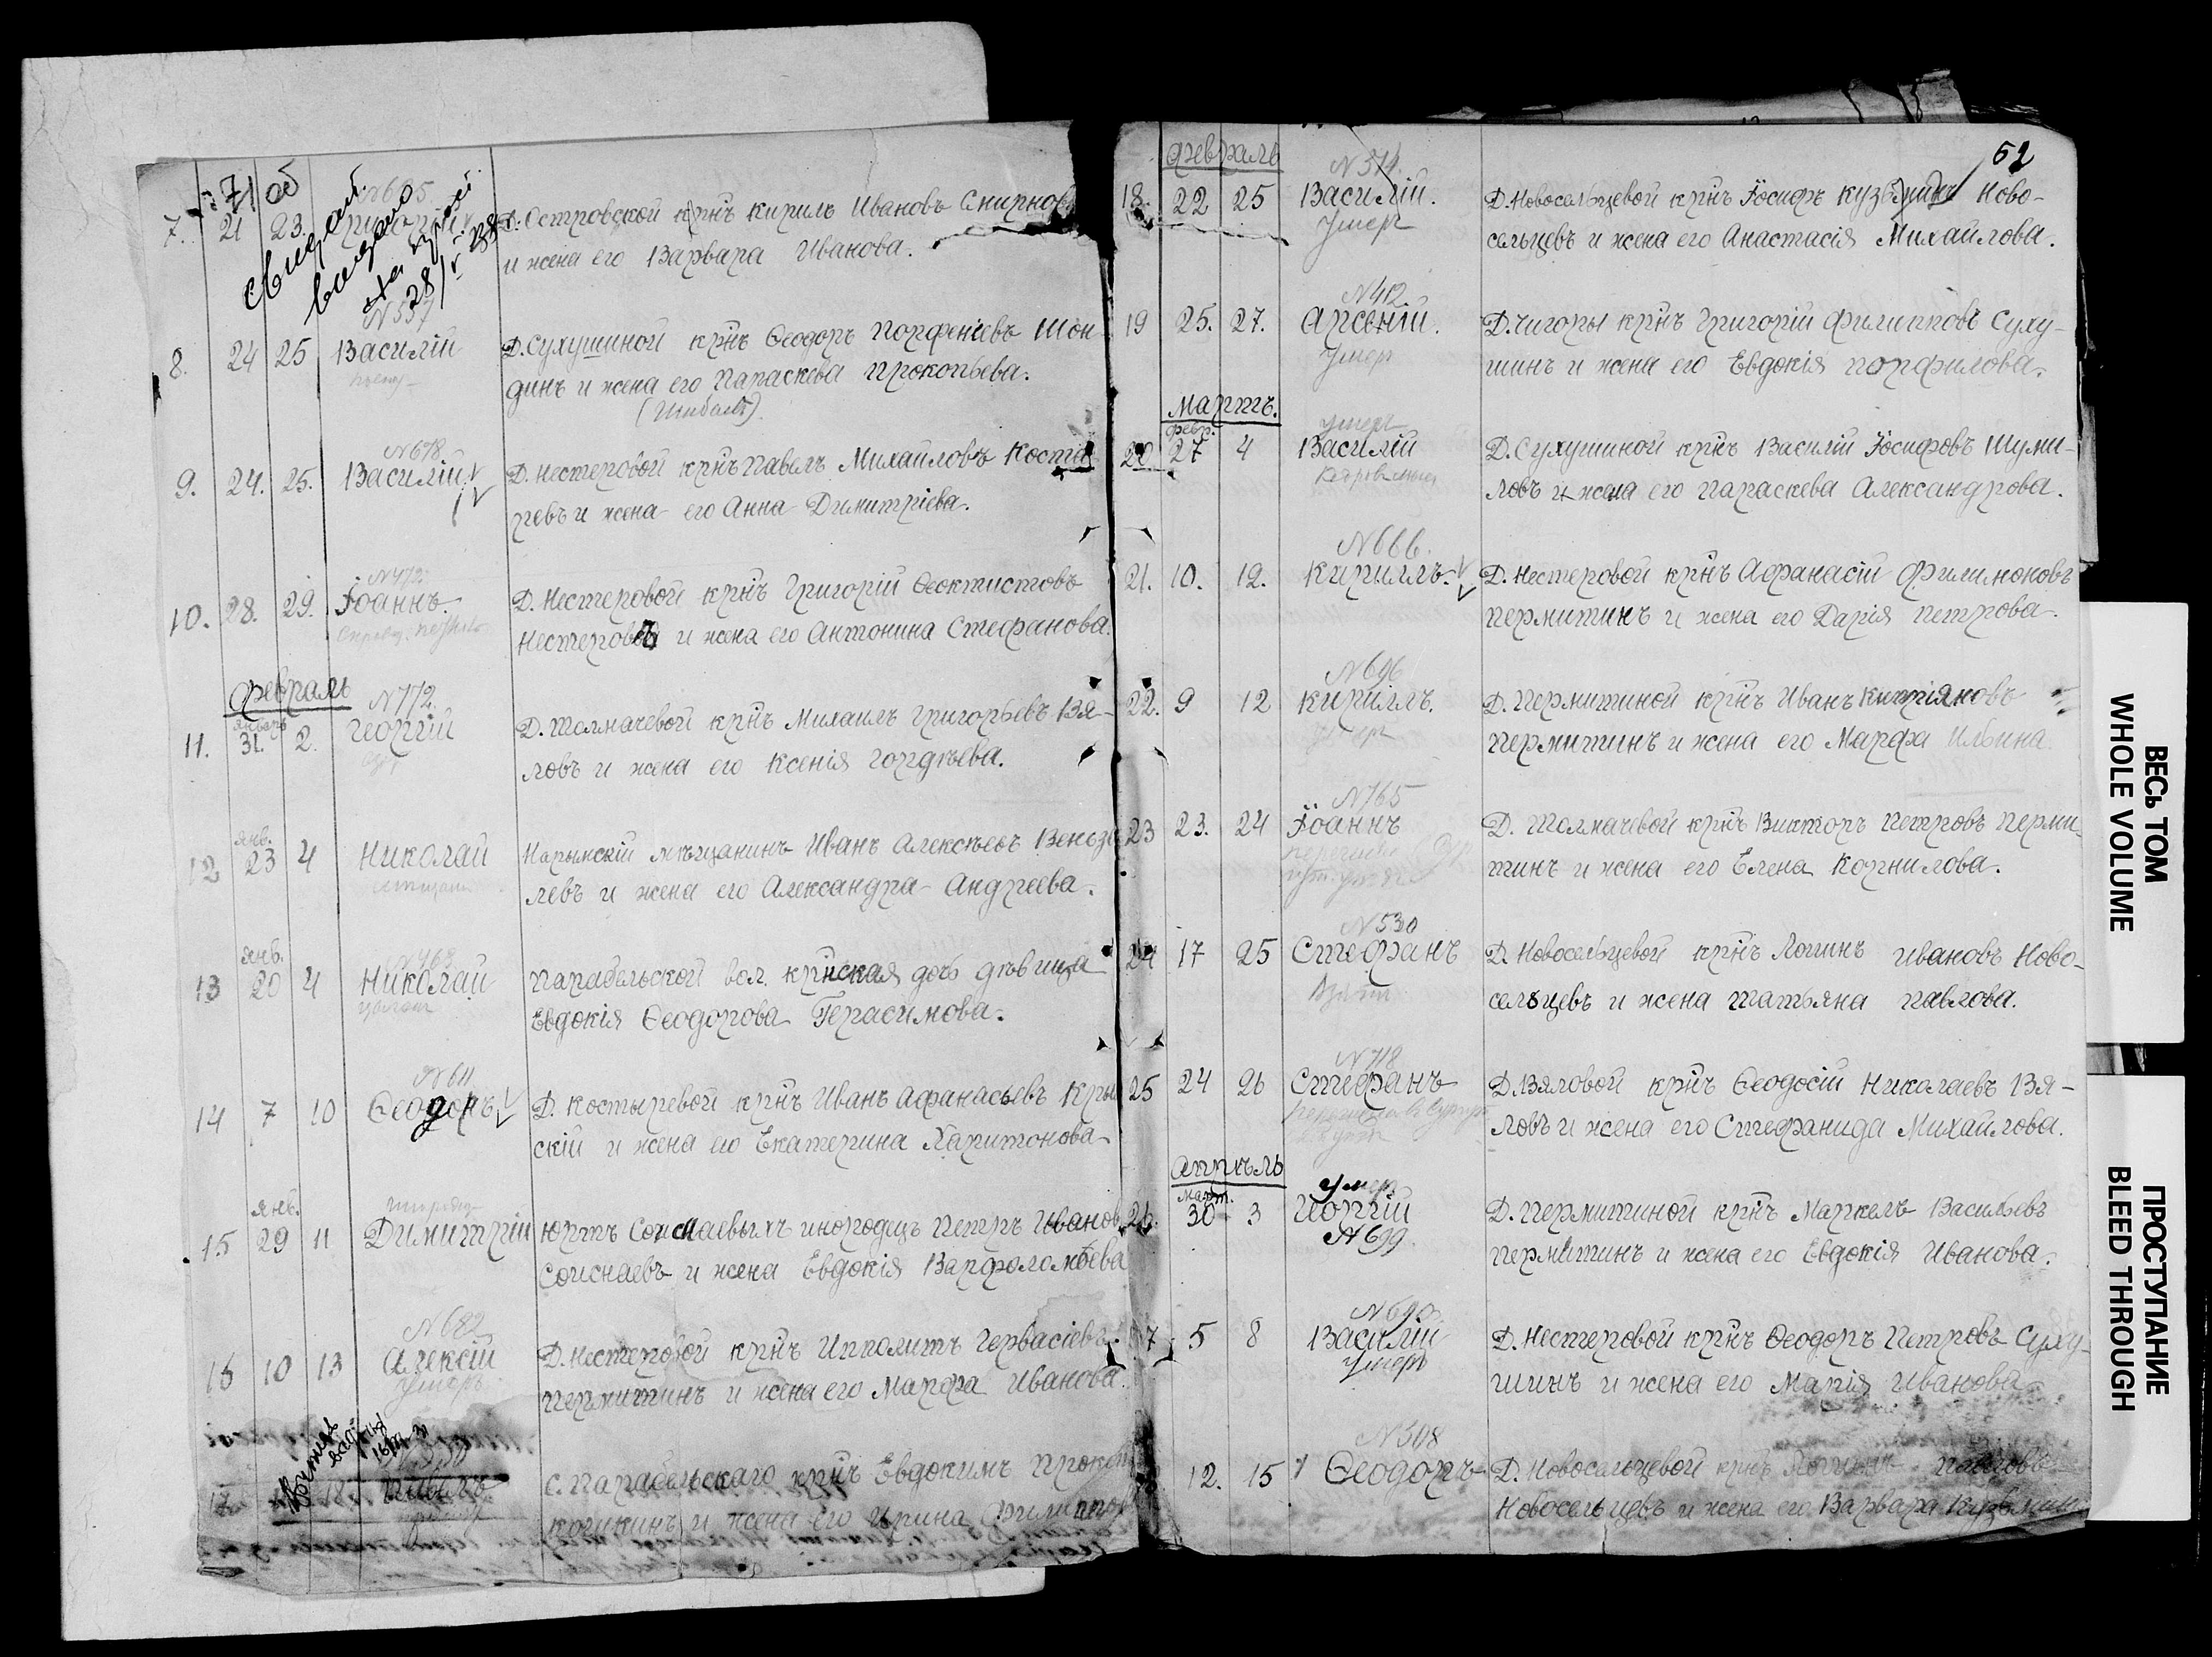 71 об
7. 21 23. N 605. Григорій Д. Островской крнъ Кирилъ Ивановъ Смирновъ
и жена его Варвара Иванова.
N 537
8. 24 25 Василій Д. Сухушиной крнъ Ѳеодоръ Порфеніевъ Шон-
динъ и жена его Параскева Прокопьева.
N 678
9. 24. 25. Василій Д. Нестеровой крнъ Павелъ Михайловъ Косты-
ревъ и жена его Анна Димитріева.
N 472
10. 28. 29. Іоаннъ. Д. Нестеровой крнъ Григорій Ѳеоктистовъ
Нестеровъ и жена его Антонина Стефанова.
Февраль
N 772.
январь
11. 31. 2. Георгій Д. Толмачевой крнъ Михаилъ Григорьевъ Вя-
ловъ и жена его Ксенія Гордѣева.
янв.
12 23 4 Николай Нарымскій мѣщанинъ Иванъ Алексѣевъ
левъ и жена его Александра Андреева.
янв. N 463
13 20 4 Николай Парабельской вол. крнская дочь дѣвица
Евдокія Ѳеодорова Герасимова.
N 611
14 7 10 Ѳеодоръ Д. Костыревой крнъ Иванъ Афанасьевъ Кры
скій и жена его Екатерина Харитонова
янв.
15 29 11 Димитрій Юртъ инородецъ Петръ Иванов
и жена Евдокія Варфоломѣева
N 682
16 10 13 Алексій Д. Нестеровой крнъ Ипполитъ Гервасіевъ
умеръ
Пермитинъ и жена его Марфа Иванова.
17 18 С. Парабельскаго крнъ Евдокимъ Прокоп
и жена его Ирина Филиппов
52
Февраль
N 514.
18. 22 25 Василій. Д. Новосельцевой крнъ Іосифъ Кузьминъ Ново-
умер
сельцевъ и жена его Анастасія Михайлова.
N 412
19 25. 27. Арсеній. Д. Чигоры крнъ Григорій Филипповъ Суху-
умер
шинъ и жена его Евдокія Порфилова.
Мартъ.
февр. умер
20 27 4 Василій Д. Сухушиной крнъ Василій Іосифовъ Шуми-
ловъ и жена его Параскева Александрова.
N 666.
21. 10. 12. Кириллъ. Д. Нестеровой крнъ Афанасій Филимоновъ
Пермитинъ и жена его Дарія Петрова.
N 696
22. 9 12 Кириллъ. Д. Пермитиной крнъ Иванъ Кипріяновъ
умер
Пермитинъ и жена его Марфа Ильина.
N 765
23 23. 24 Іоаннъ Д. Толмачевой крнъ Викторъ Петровъ Перми-
тинъ и жена его Елена Корнилова.
N 530
24 17 25 Стефанъ Д. Новосельцевой крнъ Логинъ Ивановъ Ново-
взят
сельцевъ и жена Татьяна Павлова.
N 718
25 24 26 Стефанъ Д. Вяловой крнъ Ѳеодосій Николаевъ Вя-
ловъ и жена его Стефанида Михайлова.
Апрѣль
март. умер
26. 30 3 Георгій Д. Пермитиной крнъ Маркелъ Васильевъ
N 699.
Пермитинъ и жена его Евдокія Иванова.
N 690.
27 5 8 Василій Д. Нестеровой крнъ Ѳеодоръ Петровъ Суху-
умеръ
шинъ и жена его Марія Иванова
N 508
12. 15 Ѳеодоръ Д. Новосельцевой крнъ Логинъ Павловъ
Новосельцевъ и жена его Варвара Кузьмин
ВЕСЬ ТОМ
WHOLE VOLUME
ПРОСТУПАНИЕ
BLEED THROUGH